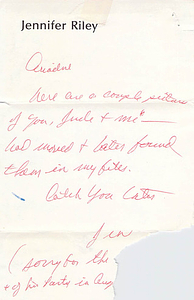 Jennifer Riley
Ariadne
Here are a couple pictures
of you, Jude & me
had moved & later found
them in my files.
Catch You Later
Jen
(sorry for the
of his party in Aug